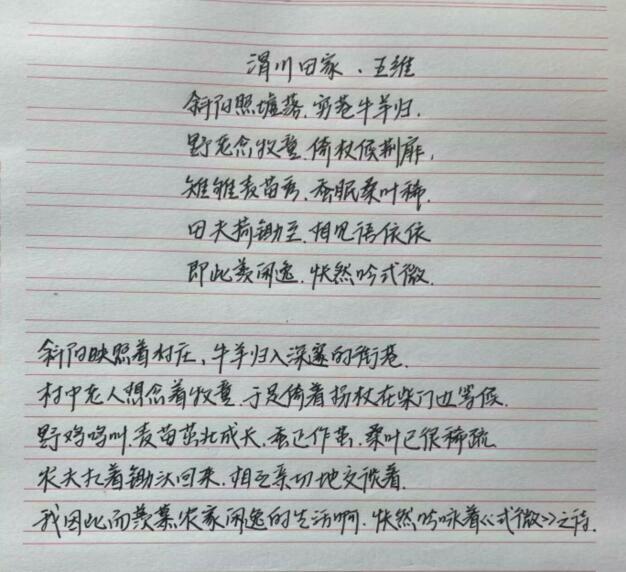 渭川田家、王维
斜阳照墟落,穷巷牛羊归,
野老念牧童,倚杖候荆扉,
雉雊麦苗秀,蚕眠桑叶稀,
田夫荷锄至,相见语依依
即此羡闲逸,怅然吟式微,
斜阳映照着村庄,牛羊归入深邃的街巷.
村中老人想念着牧童,于是倚着拐杖在柴门边等候.
野鸡鸣叫,麦苗茁壮成长,蚕正作茧,桑叶已很稀疏
农夫扛着锄头回来,相互亲切地交谈着.
我因此而羡慕农家闲逸的生活啊,怅然吟咏着《式微》之诗.